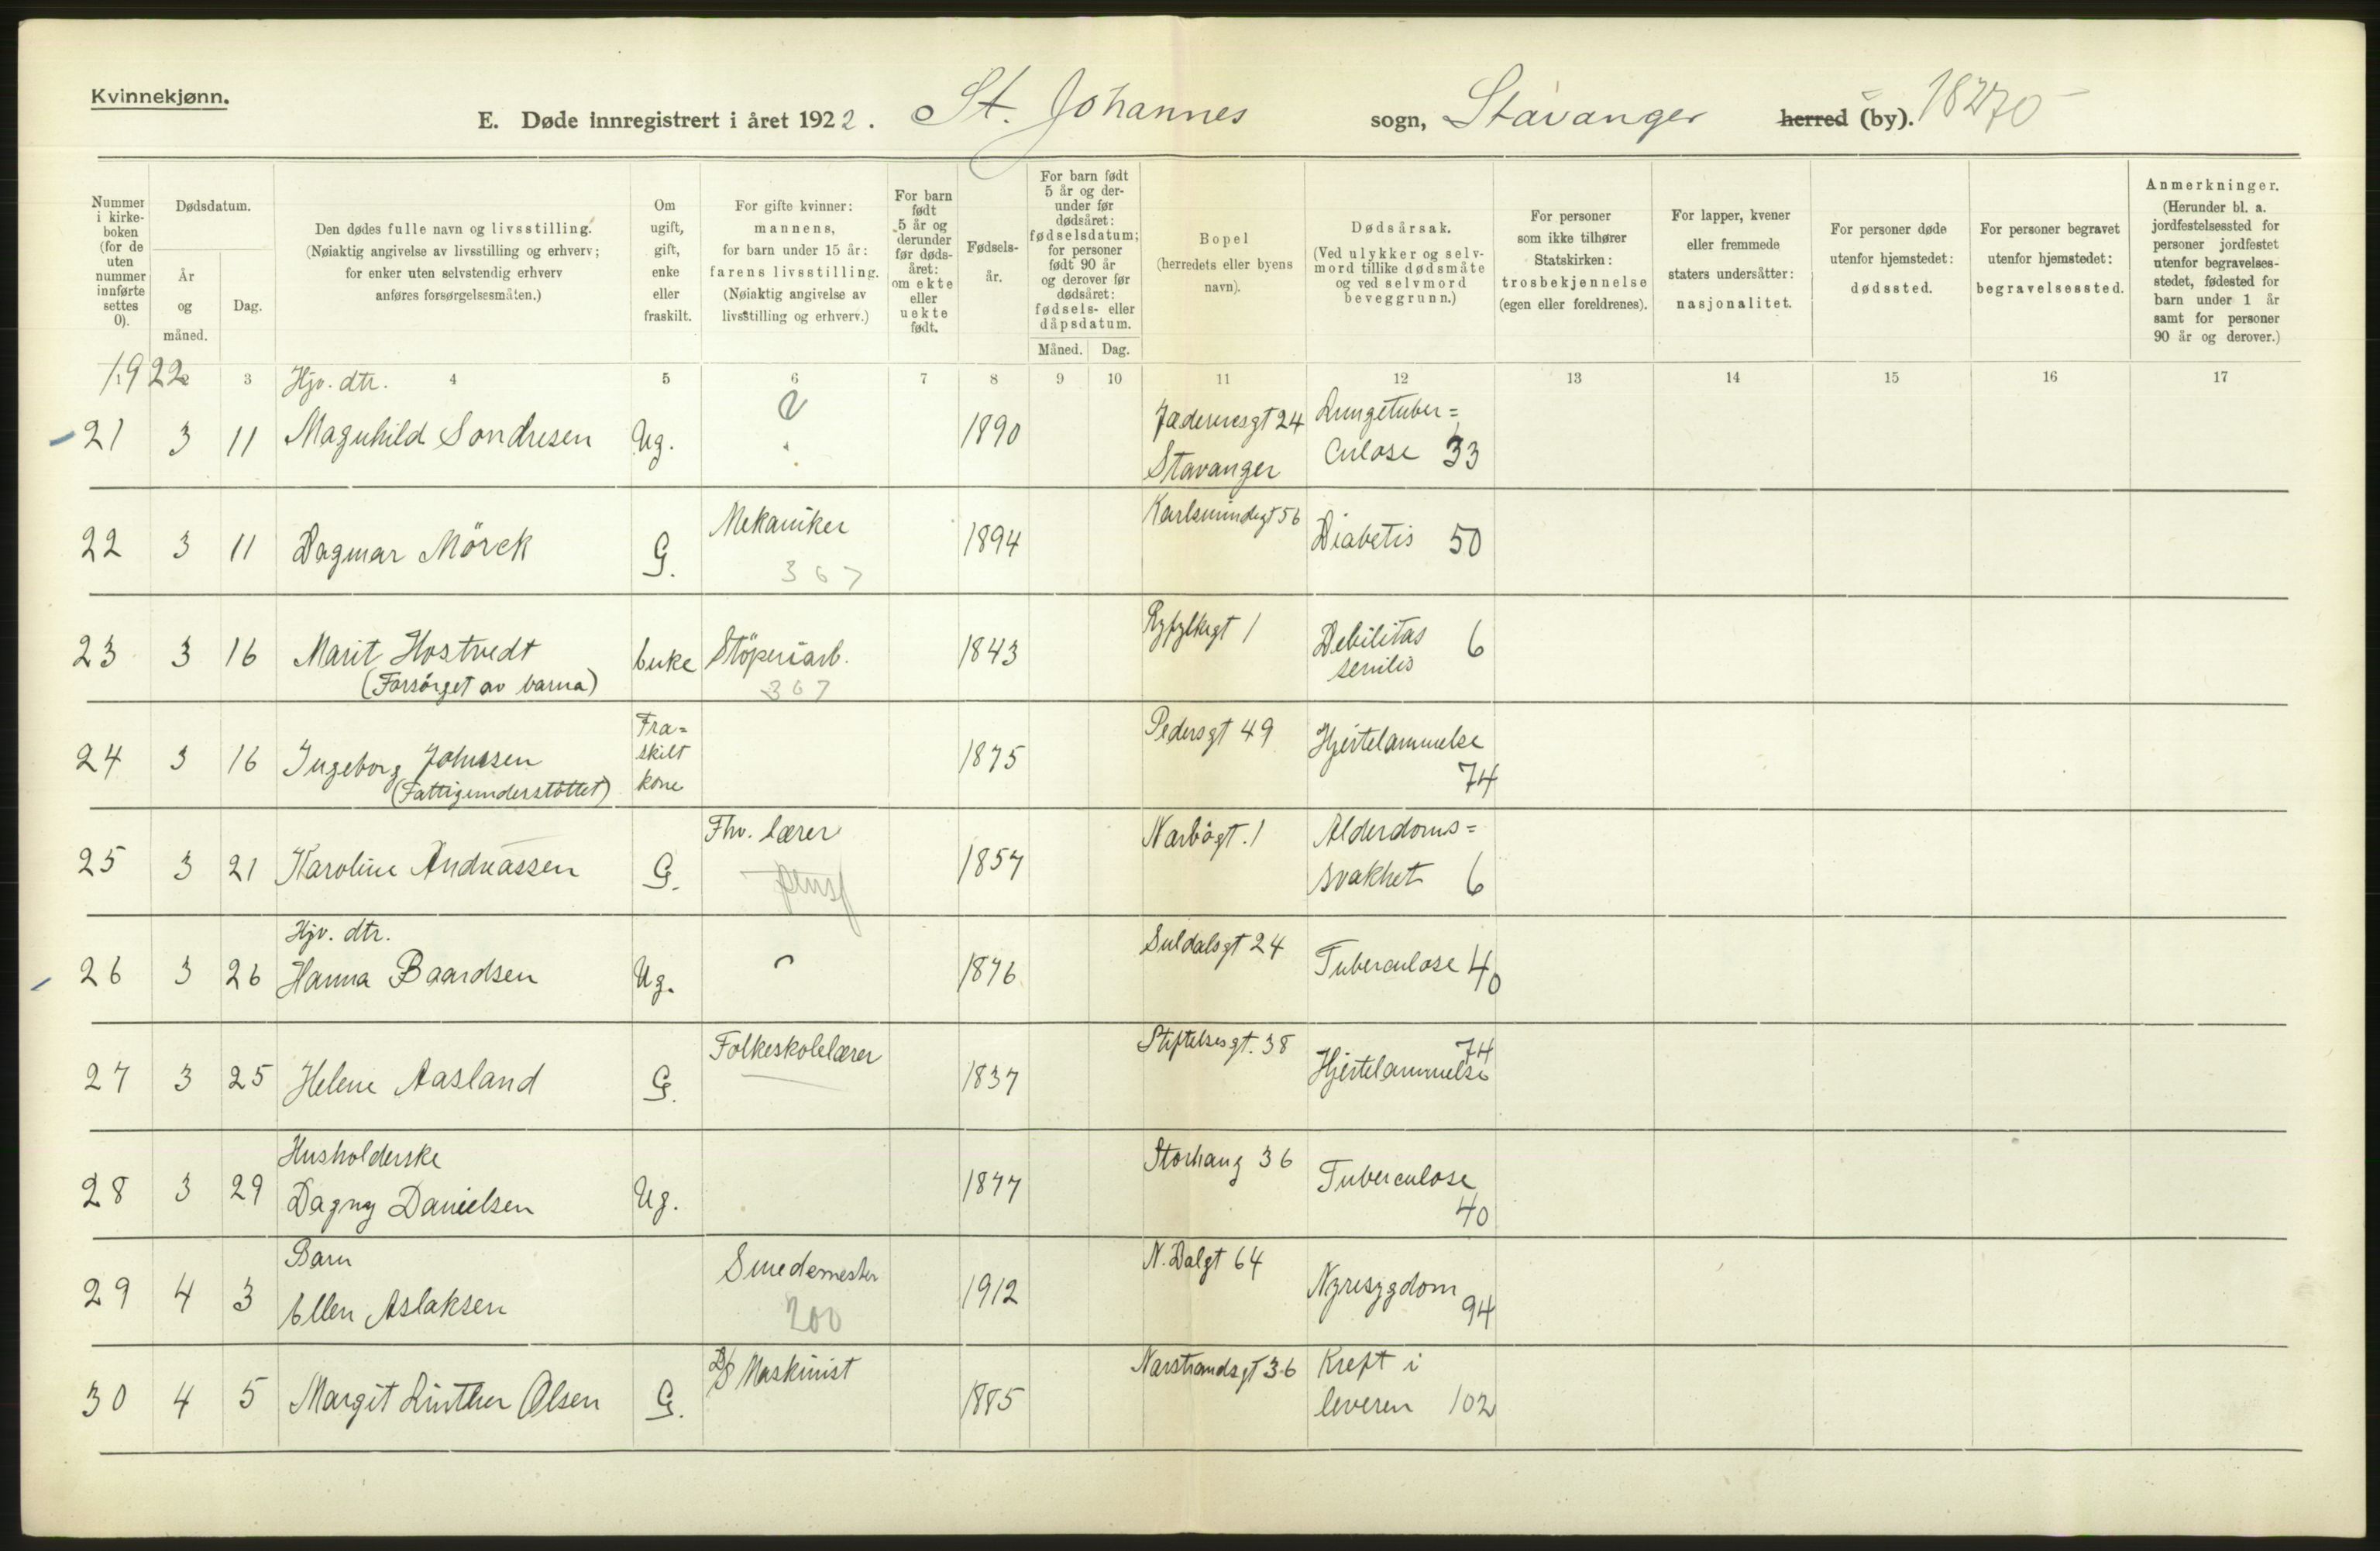 Kvinnekjønn.
E. Døde innregistrert i året 1922. St. Johannes sogn, Stavanger herred (by). 18270
Nummer i kirke-boken (for de uten nummer innførte settes 0).
Dødsdatum.
År og måned.
Dag.
Den dødes fulle navn og livsstilling.
(Nøiaktig angivelse av livsstilling og erhverv;
for enker uten selvstendig erhverv
anføres forsørgelsesmåten.)
Om ugift, gift, enke eller fraskilt.
For gifte kvinner:
mannens,
for barn under 15 år:
farens livsstilling.
(Nøiaktig angivelse av
livsstilling og erhverv.)
For barn født 5 år og derunder før døds-året: om ekte eller uekte født.
Fødsels-år.
For barn født 5 år og der-under før dødsåret: fødselsdatum; for personer født 90 år og derover før dødsåret: fødsels- eller dåpsdatum.
Måned. Dag.
Bopel
(herredets eller byens
navn).
Dødsårsak.
(Ved ulykker og selv-
mord tillike dødsmåte
og ved selvmord
beveggrunn.)
For personer
som ikke tilhører
Statskirken:
trosbekjennelse
(egen eller foreldrenes).
For lapper, kvener
eller fremmede
staters undersåtter:
nasjonalitet.
For personer døde
utenfor hjemstedet:
dødssted.
For personer begravet
utenfor hjemstedet:
begravelsessted.
Anmerkninger.
(Herunder bl. a.
jordfestelsessted for
personer jordfestet
utenfor begravelses-
stedet, fødested for
barn under 1 år
samt for personer
90 år og derover.)
1922 3 4 5 6 7 8 9 10 11 12 13 14 15 16 17
Hjv. dtr.
21 3 11 Magnhild Sondresen Ug. 1890 Jæderensgt 24 Stavanger Lungetuber=culose 33
22 3 11 Dagmar Mörck G. Mekaniker 367 1894 Karlsmindegt 56 Diabetis 50
23 3 16 Marit Hostvedt (Forsörget av barna) Enke Stöperiarb. 367 1843 Ryfylkegt 1 Debilitas senilis 6
24 3 16 Ingeborg Johnsen (Fattigunderstöttet) Fra=skilt kone 1875 Pedersgt 49 Hjertelammelse 74
25 3 21 Karoline Andreassen G. Fhv. lærer pensj 1857 Narbögt. 1 Alderdoms=svakhet 6
Hjv. dtr.
26 3 26 Hanna Baardsen Ug. 1876 Suldalsgt 24 Tuberculose 40
27 3 25 Helene Aasland G. Folkeskolelærer 1837 Stiftelsesgt. 38 Hjertelammelse 74
Husholderske
28 3 29 Dagny Danielsen Ug. 1877 Storhaug 36 Tuberculose 40
Barn
29 4 3 Ellen Aslaksen Smedemester 200 1912 N. Dalgt 64 Nyresygdom 94
30 4 5 Margit Linther Olsen G. D/S Maskinist 1885 Narstrandsgt 36 Kreft i leveren 102